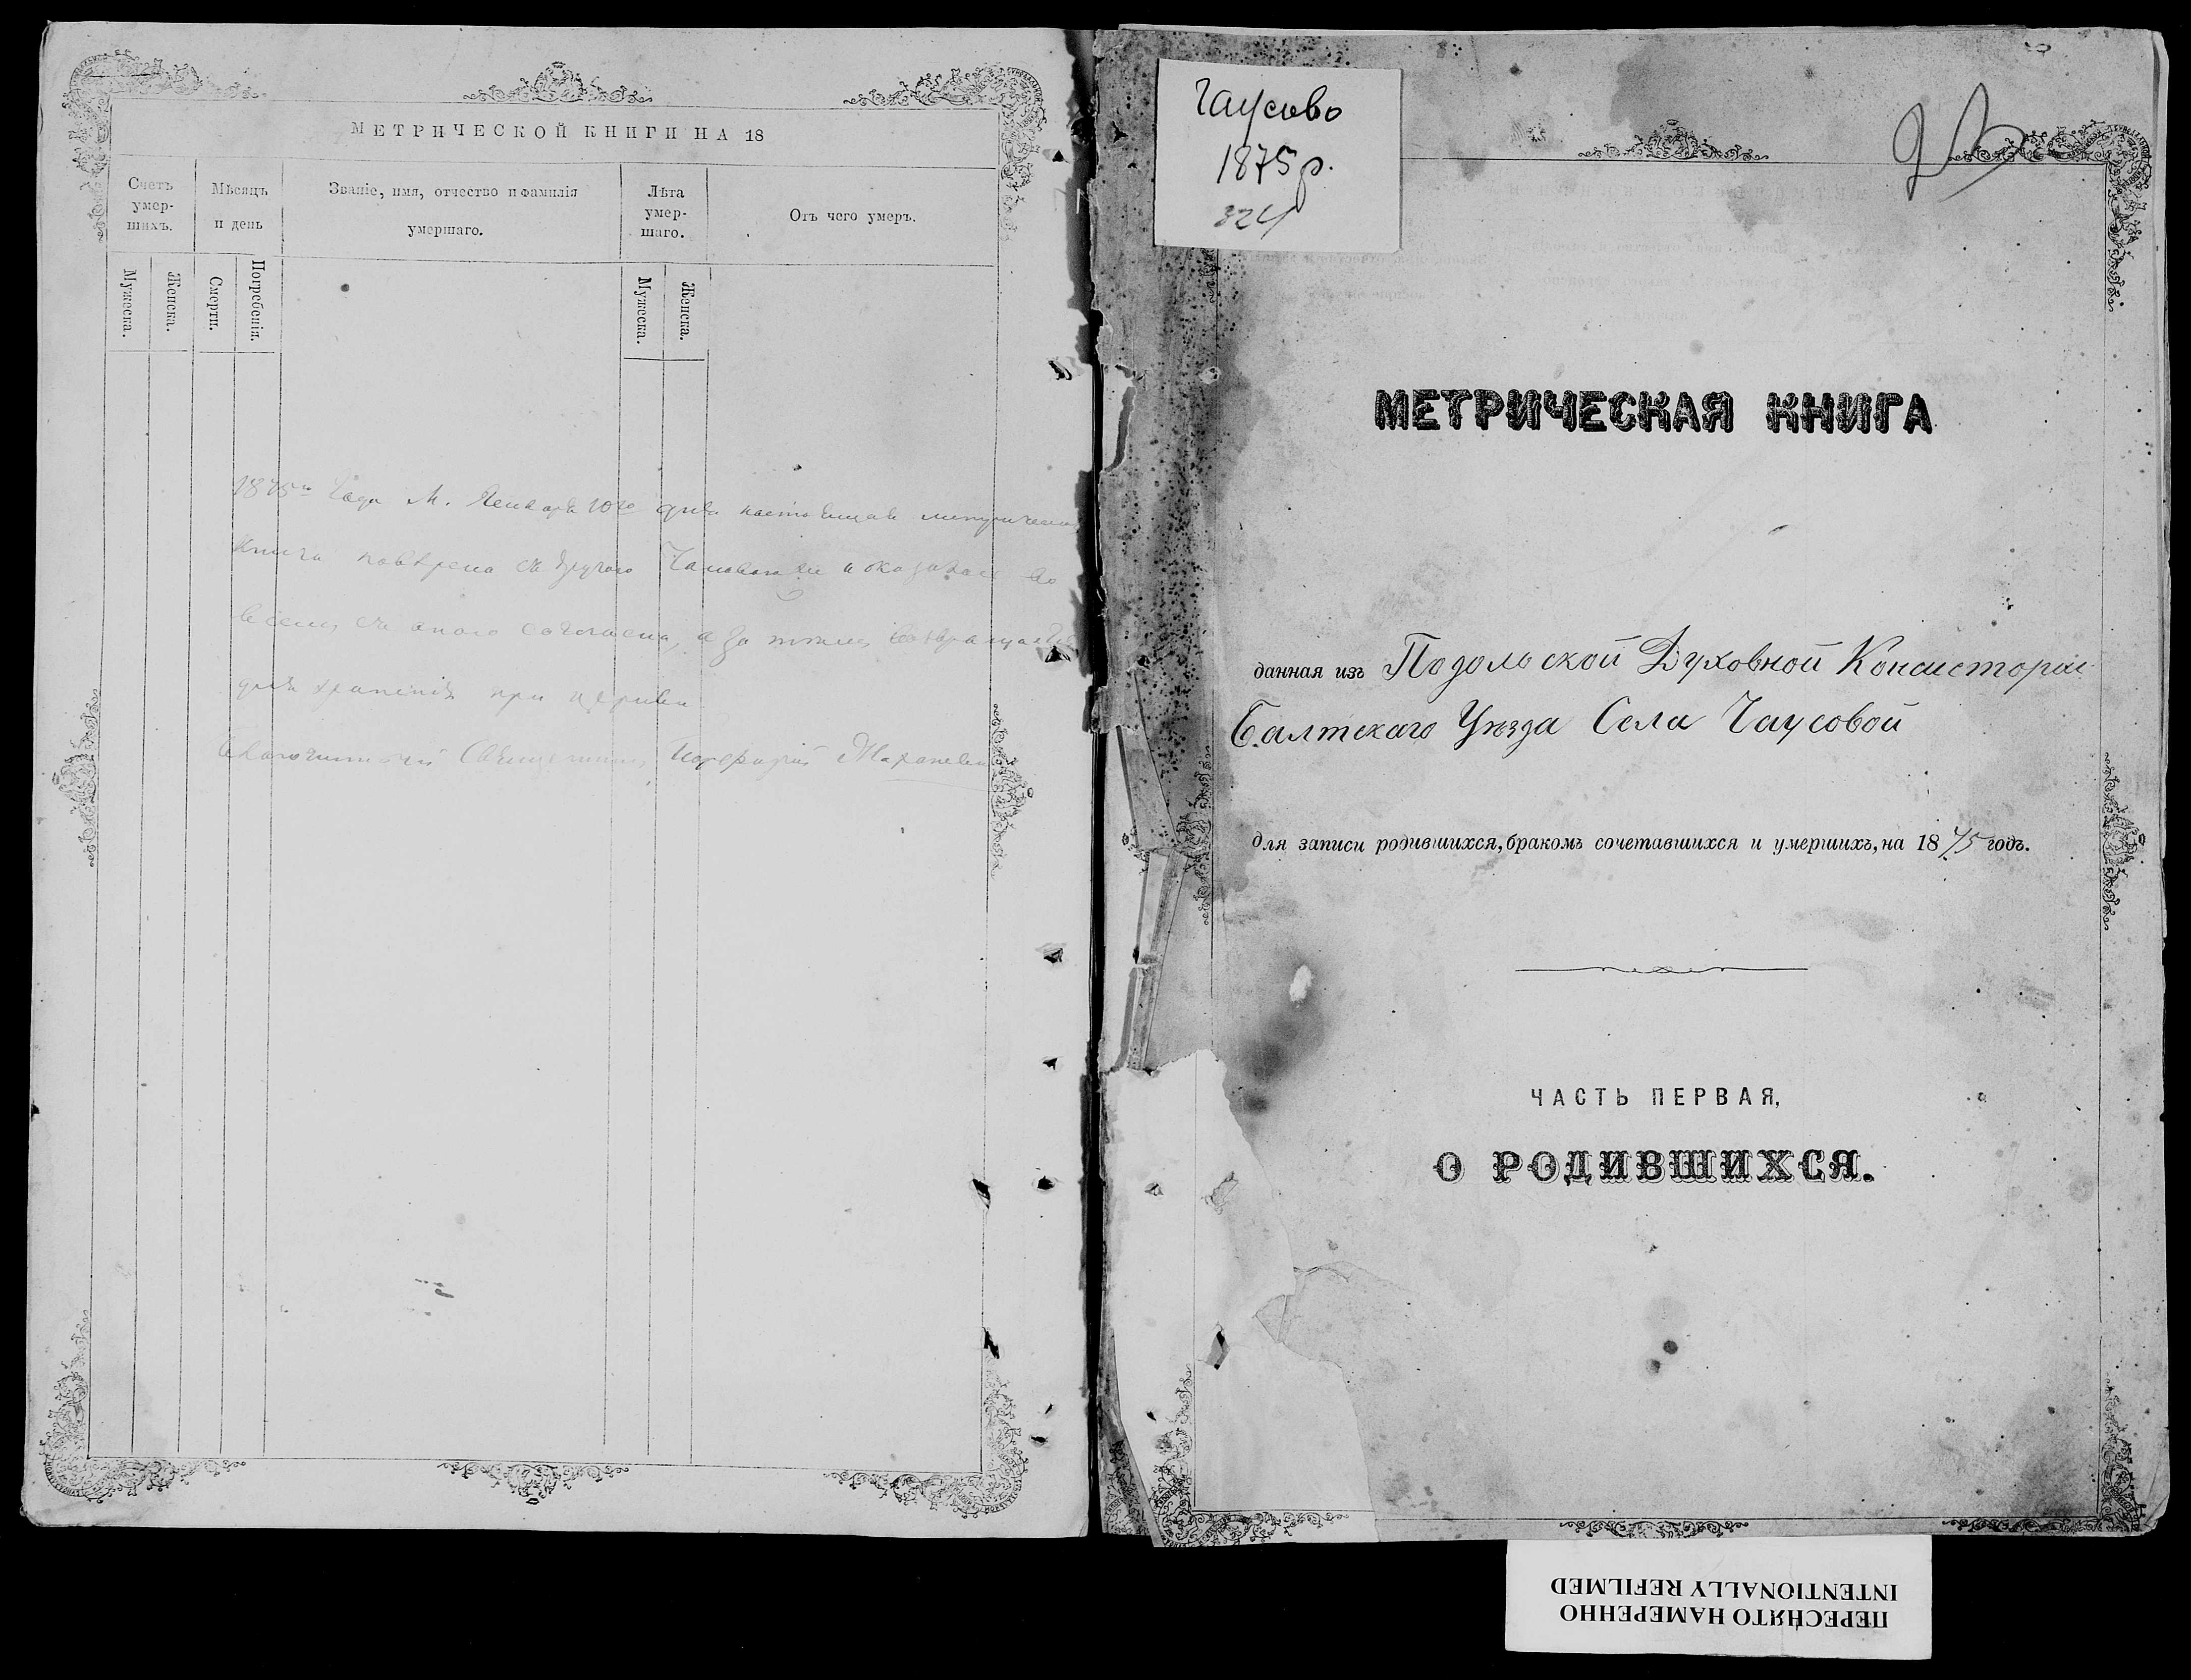 МЕТРИЧЕСКОЙ КНИГИ НА 18
Счетъ умер-шихъ.
Мѣсяцъ и день
Званіе, имя, отчество и фамилія умершаго.
Лѣта умер-шаго.
Отъ чего умеръ.
Мужеска.
Женска.
Смерти.
Погребенія.
Мужеска.
Женска.
1875го Года М. Января 10го дня настоящая
книга повѣрена съ другого и оказалась во
всемъ съ оною согласна, а за тѣмъ возвращается
для храненія при церкви
Благочинный Священникъ
Чаусово
1875 р.
МЕТРИЧЕСКАЯ КНИГА
данная изъ Подольской Духовной Консисторіи
Балтскаго Уѣзда Села Чаусовой
для записи родившихся, бракомъ сочетавшихся и умершихъ, на 1875 годъ.
ЧАСТЬ ПЕРВАЯ,
О РОДИВШИХСЯ.
ПЕРЕСНЯТО НАМЕРЕННО
INTENTIONALLY REFILMED